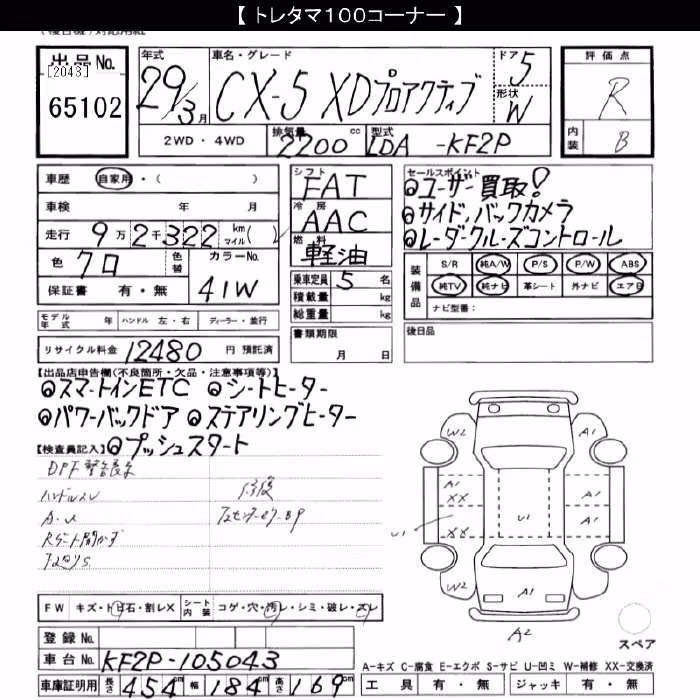 【 トレタマ100コーナー 】
出品No.
[2043]
65102
年式 29/3月
車名・グレード CX-5 XDプロアクティブ
ドア 5
形状 W
評価点 R
内装 B
2WD・4WD
排気量 2200 cc
型式 LDA -KF2P
車歴 自家用・( )
車検 年 月
走行 9万2千322 km マイル( )
色 クロ
色替
カラーNo. 41W
保証書 有・無
シフト FAT
冷房 AAC
燃料 軽油
乗車定員 5 名
積載量 kg
総重量 kg
書類期限
月 日
セールスポイント
◎ユーザー買取!
◎サイド,バックカメラ
◎レーダークルーズコントロール
装備品
S/R 純A/W P/S P/W ABS
純TV 純ナビ 革シート 外ナビ エアB
ナビ型番:
後日品
モデル年式 年 ハンドル 左・右 ディーラー・並行
リサイクル料金 12480 円 預託済
【出品店申告欄(不良箇所・欠品・注意事項等)】
◎スマートインETC ◎シートヒーター
◎パワーバックドア ◎ステアリングヒーター
【検査員記入】◎プッシュスタート
DPF警告表示
ハンドルスレ
修復
W2
A1
A1
XX
A1
U1
U1
XX
A1
W2
A1
A1
A2
スペア
FW キズ・トビ石・割レX
シート内装 コゲ・穴・汚レ・シミ・破レ・スレ
登録No.
車台No. KF2P-105043
車庫証明用 長さ 454cm 幅 184cm 高さ 169cm
A-キズ C-腐食 E-エクボ S-サビ U-凹ミ W-補修 XX-交換済
工具 有・無 ジャッキ 有・無